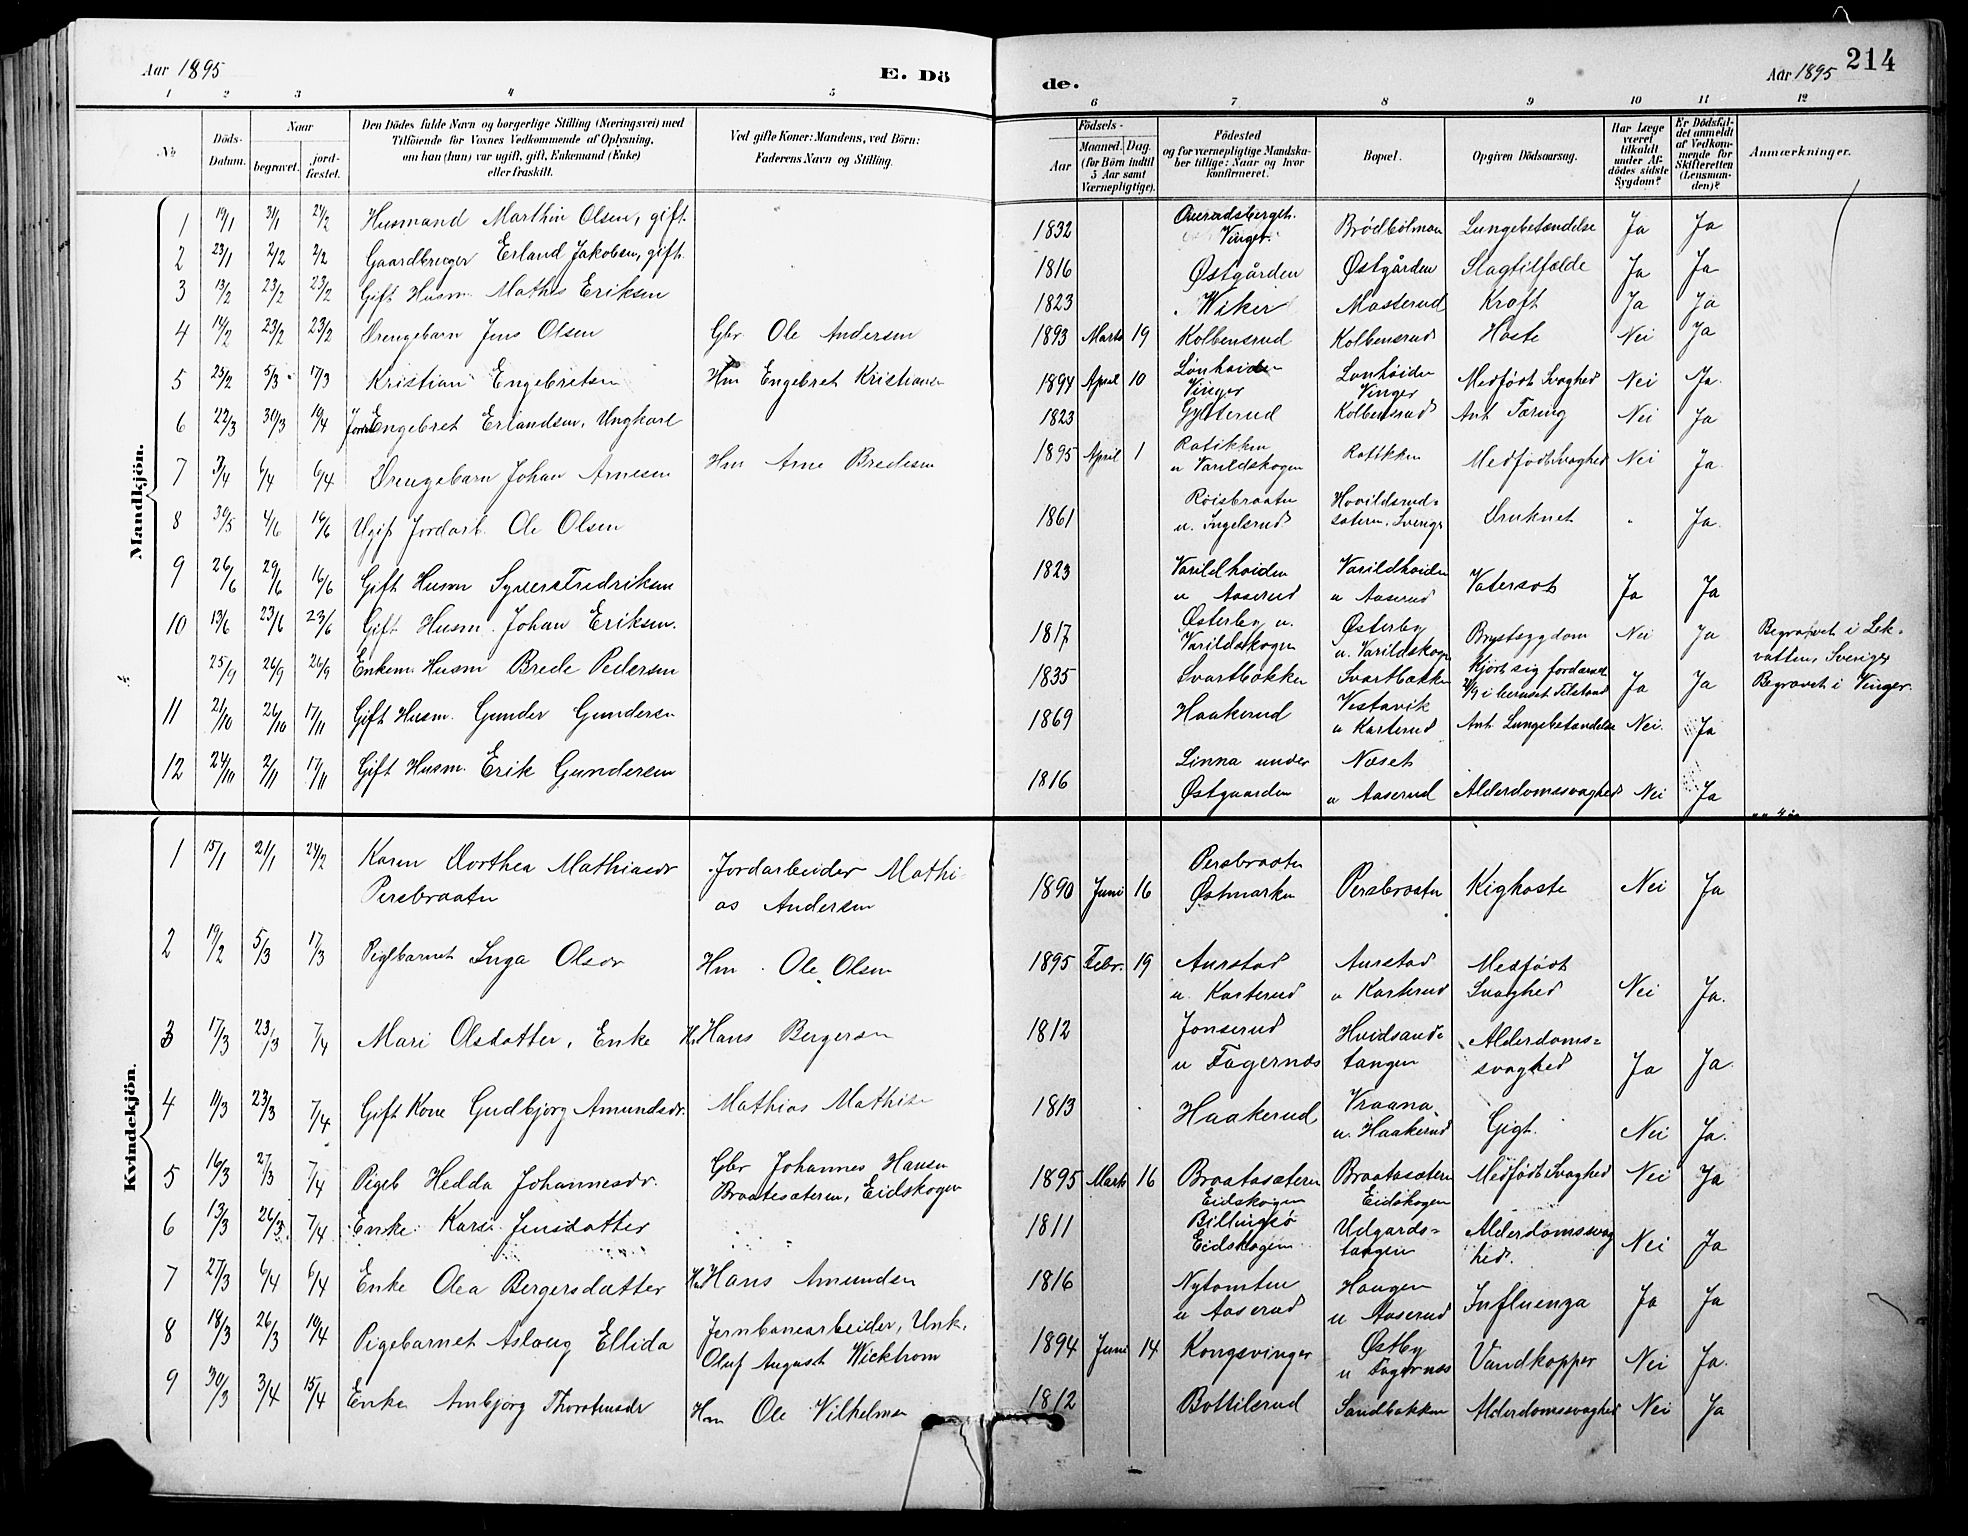 Aar 1895
E. Dö
de.
Aar 1895
214
1 2 3 4 5 6 7 8 9 10 11 12
No
Döds-Datum.
Naar
begravet.
jord-fæstet.
Den Dödes fulde Navn og borgerlige Stilling (Næringsvei) med
Tilföiende for Voxnes Vedkommende af Oplysning,
om han (hun) var ugift, gift, Enkemand (Enke)
eller fraskilt.
Ved gifte Koner: Mandens, ved Börn:
Faderens Navn og Stilling.
Födsels-
Aar
Maaned. Dag.
(for Börn indtil
5 Aar samt
Værnepligtige).
Födested
og for værnepligtige Mandska-
ber tillige: Naar og hvor
konfirmeret.
Bopæl.
Opgiven Dödsaarsag.
Har Læge
været
tilkaldt
under Af-
dödes sidste
Sygdom?
Er Dödsfal-
det anmeldt
af Vedkom-
mende for
Skifteretten
(Lensman-
den)?
Anmærkninger.
Mandkjön.
1 19/1 3/1 24/2 Husmand Marthin Olsen, gift 1832 Vinger. Brödbölmoen Lungebetændelse Ja Ja
2 23/1 2/2 2/2 Gaardbruger Erland Jakobsen, gift 1816 Østgården Østgården Slagtilfælde Ja Ja
3 13/2 23/2 23/2 Gift Husm. Mathis Eriksen 1823 Wiker Masterud Kræft Ja Ja
4 14/2 23/2 23/2 Drengebarn Jens Olsen Gbr Ole Andersen 1893 Marts 19 Kolbensrud Kolbensrud Hoste Nei Ja
5 25/2 5/3 17/3 Kristian Engebretsen Hm Engebret Kristiansen 1894 April 10 Lønhøiden Vinger Lønhøiden Vinger Medfødt Svaghed Nei Ja.
6 22/3 30/3 19/4 Engebret Erlandsen, Ungkarl 1823 Gylterud Kolbensrud Ant. Tæring Nei Ja
7 3/4 6/4 6/4 Drengebarn Johan Arnesen Hm Arne Bredesen 1895 April 1 Rotikken u Varildskogen Rotikken Medfødt Svaghed Nei Ja.
8 30/5 4/6 16/6 Ugift Jordarb. Ole Olsen 1861 Røisbraaten u. Ingelsrud Hovildsrud-sætern. Sverige Druknet " Ja.
9 26/6 29/6 16/6 Gift Husm Syver Fredriksen 1823 Varildhøiden u Aaserud Varildhøiden u Aaserud Vatersot Ja Ja
10 13/6 23/6 23/6 Gift Husm. Johan Eriksen. 1817 Østerby u. Varildskogen Østerby u. Varildskogen Brystsygdom Nei Ja Begravet i Lek-vatten, Sverige
25/9 26/9 26/9 Enkem. Husm Brede Pedersen 1835 Svartbækken Svartbækken Kjørt sig fordærvet 21/9 i beruset Tilstand Ja Ja Begravet i Vinger.
11 21/10 26/10 17/11 Gift Husm. Gunder Gundersen 1869 Haakerud Vestavik u Karterud Ant Lungebetændelse Nei. Ja
12 24/10 2/11 17/11 Gift Husm. Erik Gundersen 1816 Linna under Østgaarden Næset u Aaserud Alderdomssvaghed Nei Ja
Kvindekjön.
1 15/1 21/1 24/2 Karen Dorthea Mathiasdr Persbraaten Jordarbeider Mathi-as Andersen 1890 Juni 16 Persbraaten Østmarken Persbraaten Kighoste Nei Ja
2 19/2 5/3 17/3 Pigebarnet Inga Olsdr Hm. Ole Olsen 1895 Febr. 19 Aurstad u. Karterud Aurstad u Karterud Medfødt Svaghed Nei Ja.
3 17/3 23/3 7/4 Mari Olsdatter, Enke Hm Hans Bergersen 1812 Jonserud u Fagernæs Hvidsand-tangen Alderdoms-svaghed Ja Ja.
4 11/3 23/3 7/4 Gift Kone Gudbjørg Amundsdr. Mathias Mathisen 1813 Haakerud Vraana u. Haakerud Gigt. Nei Ja.
5 16/3 27/3 7/4 Pigeb Hedda Johannesdr. Gbr Johannes Hansen Braatesæteren, Eidskogen 1895 Marts 16 Braatasæteren Eidskogen Braatasæteren Eidskogen Medfødt Svaghed Nei Ja
6 13/3 26/3. 7/4 Enke Kari Jensdatter 1811 Billingsø Eidskogen Udgards-tangen Alderdomssvag-hed. Nei Ja
7 27/3 6/4 6/4 Enke Olea Bergersdatter Hm Hans Amundsen 1816 Nytomten u Aaserud Haugen u Aaserud Influenza Ja Ja
8 18/3 26/3 19/4 Pigebarnet Aslaug Ellida Jernbanearbeider, Unk. Oluf August Wickstrøm 1894 Juni 14 Kongsvinger Østby u Fagernæs Vandkopper Nei Ja.
9 30/3 3/4 15/4 Enke Ambjørg Thorstensdr Hm Ole Vilhelmsen 1812 Bottilsrud Sandbakken Alderdomssvaghed Nei Ja